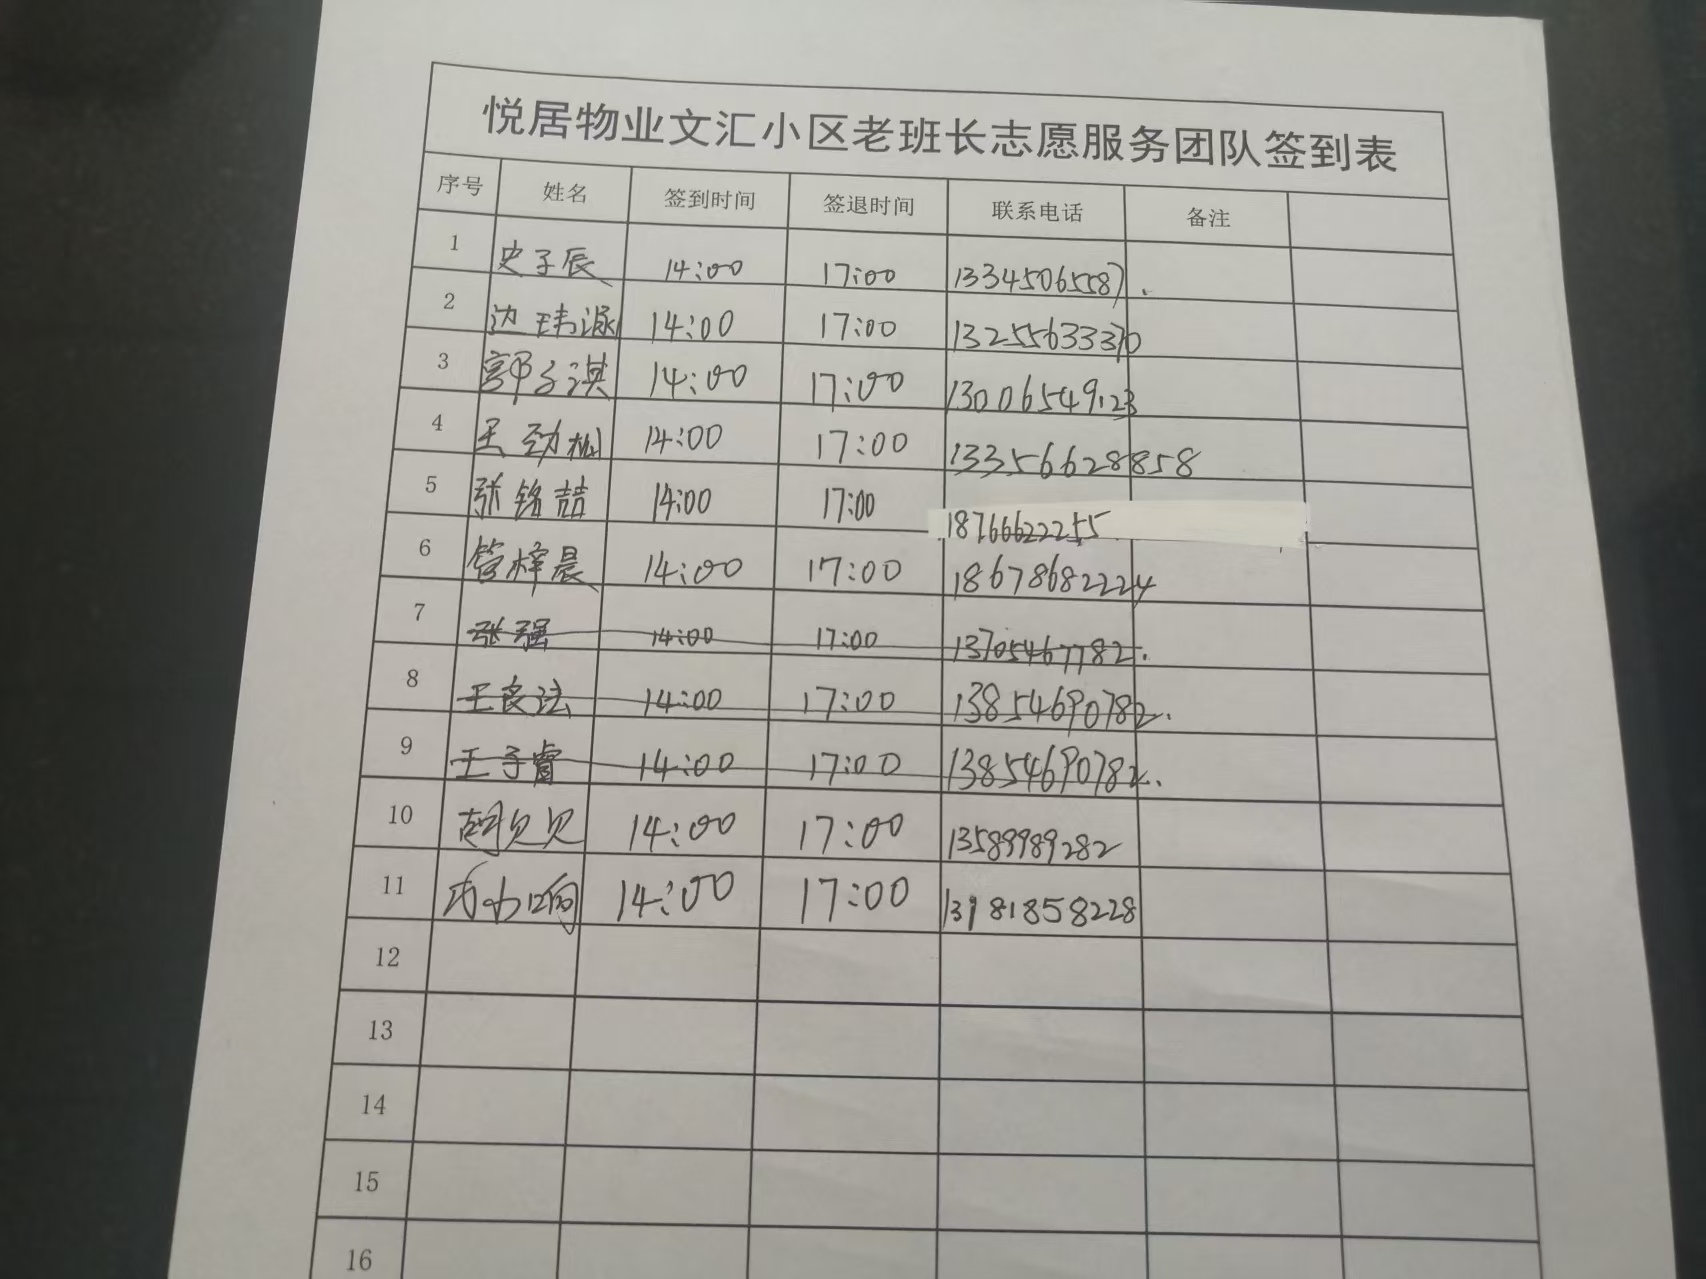 悦居物业文汇小区老班长志愿服务团队签到表
序号 姓名 签到时间 签退时间 联系电话 备注
1 史子辰 14:00 17:00 13345065587
2 边玮涵 14:00 17:00 13255633370
3 郭子淇 14:00 17:00 13006549123
4 王劲 14:00 17:00 13356628858
5 张铭喆 14:00 17:00 18766622255
6 管梓晨 14:00 17:00 18678682224
7 张强 14:00 17:00 13705467782
8 王良法 14:00 17:00 13854690782
9 王子睿 14:00 17:00 13854690782
10 胡贝贝 14:00 17:00 13589989282
11 14:00 17:00 13181858228
12
13
14
15
16